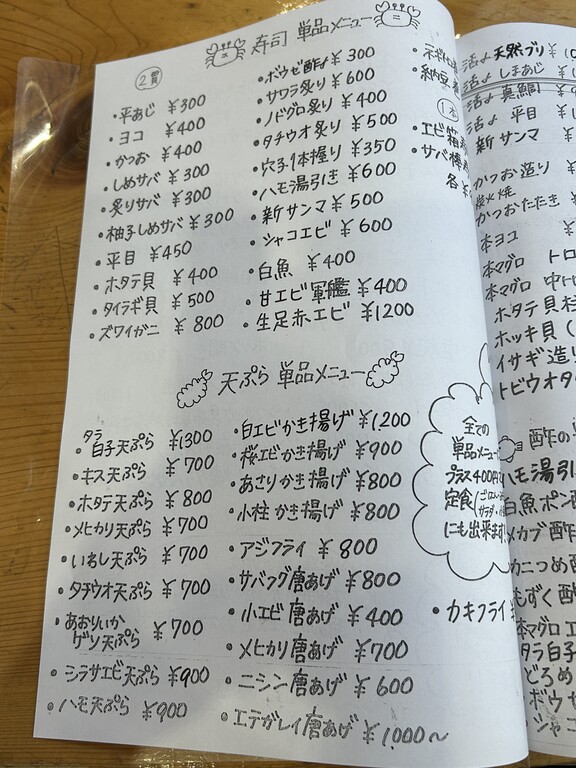 寿司 単品メニュー
2貫
・平あじ ¥300
・ヨコ ¥400
・かつお ¥400
・しめサバ ¥300
・炙りサバ ¥300
・柚子しめサバ ¥300
・平目 ¥450
・ホタテ貝 ¥400
・タイラギ貝 ¥500
・ズワイガニ ¥800
・ボウゼ酢〆 ¥300
・サワラ炙り ¥600
・ノドグロ炙り ¥400
・タチウオ炙り ¥500
・穴子1本握り ¥350
・ハモ湯引き ¥600
・新サンマ ¥500
・シャコエビ ¥600
・白魚 ¥400
・甘エビ軍艦 ¥400
・生足赤エビ ¥1200
1本
・エビ箱寿
・サバ棒寿
各¥
天ぷら 単品メニュー
・タラ白子天ぷら ¥1300
・キス天ぷら ¥700
・ホタテ天ぷら ¥800
・メヒカリ天ぷら ¥700
・いわし天ぷら ¥700
・タチウオ天ぷら ¥700
・あおりいか
ゲソ天ぷら ¥700
・シラサエビ天ぷら ¥900
・ハモ天ぷら ¥900
・白エビかき揚げ ¥1200
・桜エビかき揚げ ¥900
・あさりかき揚げ ¥800
・小柱かき揚げ ¥800
・アジフライ ¥800
・サバフグ唐あげ ¥800
・小エビ唐あげ ¥400
・メヒカリ唐あげ ¥700
・ニシン唐あげ ¥600
・エテガレイ唐あげ ¥1000〜
全ての
単品メニュー
プラス400円
定食
にも出来ます
・カキフライ ¥
活〆 天然ブリ
活〆 しまあじ
活〆 真鯛
活〆 平目
新サンマ
かつお造り
炭火焼
かつおたたき
本ヨコ
本マグロ トロ
本マグロ 中ト
ホタテ貝
ホッキ貝
イサギ造
トビウオタ
酢の
ハモ湯引
白魚ポン
メカブ酢
カニつめ
もずく酢
本マグロ
タラ白子
どろめ
ボウゼ
シャコ